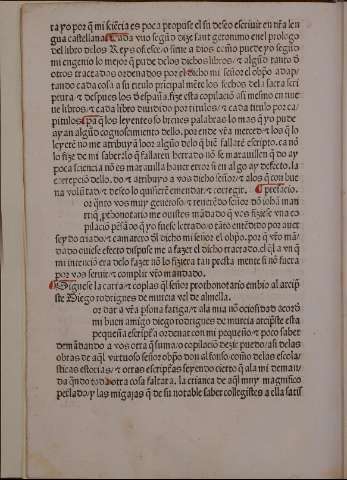 ra yo por q̃ mi sciẽcia es poca propuse el su deseo escriuir en nr̃a len
gua castellana. Cada vno segũd dize sant geronimo enel prologo
del libro delos Reyes ofresce / o sirue a dios como puede yo segũd
mi engenio lo mejor q̃ pude delos dichos libros / ⁊ algũd tanto d
otros tractados ordenados por el dicho mi señor el obpõ. adap/
tando cada cosa a su titulo prinçipal mẽte los fechos dela sacra scri
ptura ⁊ despues los despaña. fize esta copilaciõ asi mesmo en nue
ue libros / ⁊ cada libro diuidido por titulos / ⁊ cada titulo por ca
pitulos. pa q̃ los leyentes so breues palabras lo mas q̃ yo pude
ayan algũd cognoscimiento dello. por ende vr̃a merced ⁊ los q̃ lo
leyerẽ no me atribuyã loor algũo delo q̃ biẽ fallarẽ scripto. ca nõ
lo fize de mi saber. lo q̃ fallarẽ herrado nõ se marauillen q̃ do ay
poca sciencia nõ es marauilla hauer error si en algo ay defecto. la
correpciõ dello. do ⁊ atribuyo a vos dicho señor ⁊ alos q̃ con bue
na volũtad ⁊ deseo lo quisierẽ emendar / ⁊ corregir. prefacio.
or quãto vos muy generoso / ⁊ reuerẽdo señor dõ iohã man
riq̃ prothonotario me ouistes mãdado q̃ vos fiziese vna co
pilaciõ pẽsãdo q̃ yo fuese letrado / o tãto entẽdido por auer
seydo criado / ⁊ camarero dl dicho mi señor el obpõ. por q̃ vr̃o mã/
dado ouiese efecto dispuse me a fazer el dicho tractado. el q̃l a vn q̃
mi intenciõ era delo fazer nõ lo fiziera tan presta mente si nõ fuera
por vos seruir / ⁊ complir vr̃o mandado.
Siguese la carta / ⁊ coplas q̃l señor prothonotario embio al arcip̃
ste Diego rodrigues de murcia vel de almella.
or dar a vr̃a plona fatiga / ⁊ ala mia nõ ociosidad acorde
mi buen amigo diego rodrigues de murcia arcip̃ste esta
pequeña escriptura ordenar con mi pequeño / ⁊ poco saber
demãdando a vos otra q̃ suma / o copilaciõ dezir puedo / asi delas
obras de aq̃l virtuoso señor obpõ don alfonso. como delas escola/
sticas estorias / ⁊ otras escripturas seyendo cierto q̃ ala mi demãn/
da q̃ndo toda otra cosa faltara. la criança de aq̃l muy magnifico
perlado / y las migajas q̃ de su notable saber collegistes a ella satis